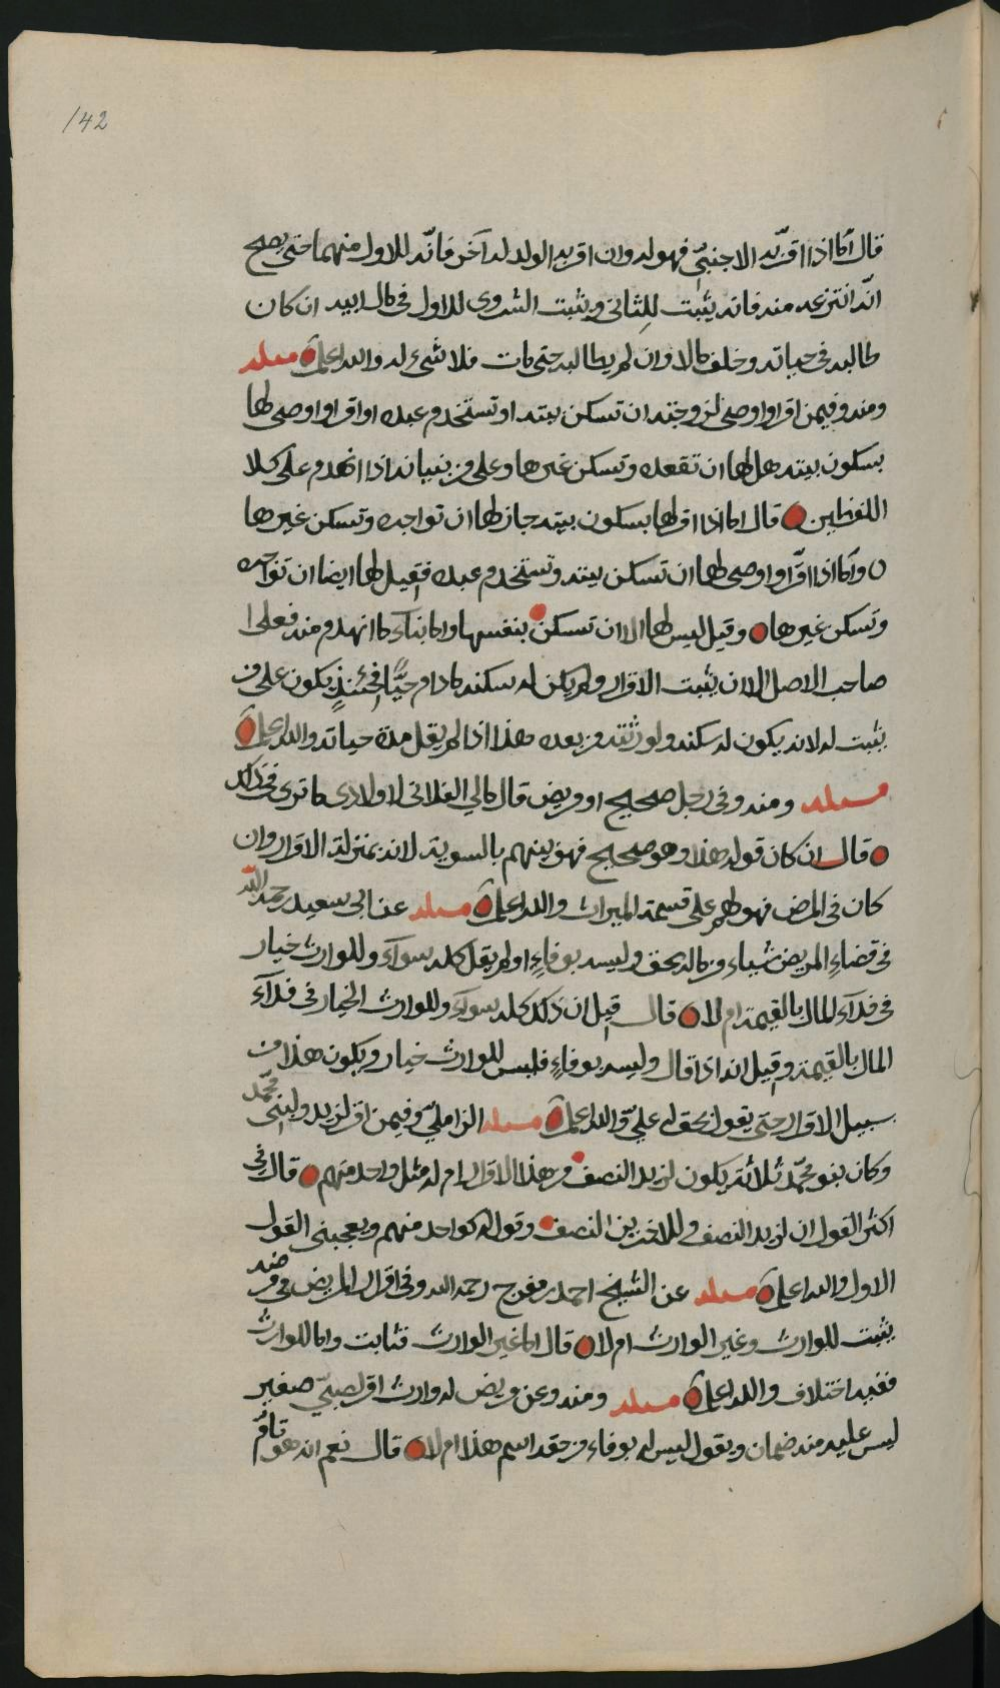 142
قال اما اذا اقرّ به الاجنبيّ فهو له وان اقر به لولد له آخر فانّه للاول منهما حتى يصح
انّه انتزعه منه فانه يثبت للثانى ويثبت الشروى للاول فى مال ابيه ان كان
طالبه فى حياته وخلف مالا وان لم يطالبه حتى مات فلا شىء له والله اعلم مسئله
ومنه وفيمن اقر او اوصى لزوجته ان تسكن بيته او تستخدم عبده او اقر او اوصى لها
بسكون بيته هل لها ان تقعده وتسكن غيرها وعلى من بنيانه اذا انهدم على كلا
اللفظين قال اما اذا اقر لها بسكون بيته جاز لها ان تواجره وتسكن غيرها
واما اذا اقرّ او اوصى لها ان تسكن بيته وتستخدم عبده فقيل لها ايضا ان تواجره
وتسكن غيرها وقيل ليس لها الا ان تسكن بنفسها واما بناء ما انهدم منه فعلى
صاحب الاصل الا ان يثبت الاقرار ولم يكن له سكنه ما دام حيًّا فحينئذٍ يكون على من
يثبت له لانه يكون له سكنه ولورثته من بعده هذا اذا لم يقل مدة حياته والله اعلم
مسئله ومنه وفى رجل صحيح او مريض قال مالي الفلانى لاولادى ما ترى فى ذلك
قال ان كان قوله هذا وهو صحيح فهو بينهم بالسوية لانه بمنزلة الاقرار وان
كان فى المرض فهو لهم على قسمة الميراث والله اعلم مسئله عن ابى سعيد رحمه الله
فى قضاءِ المريض شياء من ماله بحق وليس بوفاءٍ او لم يقل كله سوآء وللوارث خيار
فى فدآء المال بالقيمة ام لا قال قيل ان ذلك كله سوآء وللوارث الخيار فى فدآء
المال بالقيمة وقيل انه اذا قال وليس بوفاءٍ فليس للوارث خيار ويكون هذا من
سبيل الاقرار حتى يقول بحق له عليّ والله اعلم مسئله الزامليّ وفيمن اقر لزيد ولبنى محمّد
وكان بنو محمّد ثلاثة يكون لزيد النصف من هذا الاقرار ام له مثل واحد منهم قال فى
اكثر القول ان لزيد النصف وللاخرين النصف وقول له كواحد منهم ويعجبنى القول
الاول والله اعلم مسئله عن الشيخ احمد بن مفرج رحمه الله وفى اقرار المريض فى مرضه
يثبت للوارث وغير الوارث ام لا قال اما غير الوارث فثابت واما للوارث
ففيه اختلاف والله اعلم مسئله ومنه وعن مريض له وارث اقر لصبيّ صغير
ليس عليه منه ضمان ويقول ليس له بوفاء من حقه اسم هذا ام لا قال نعم انه هو تامّ